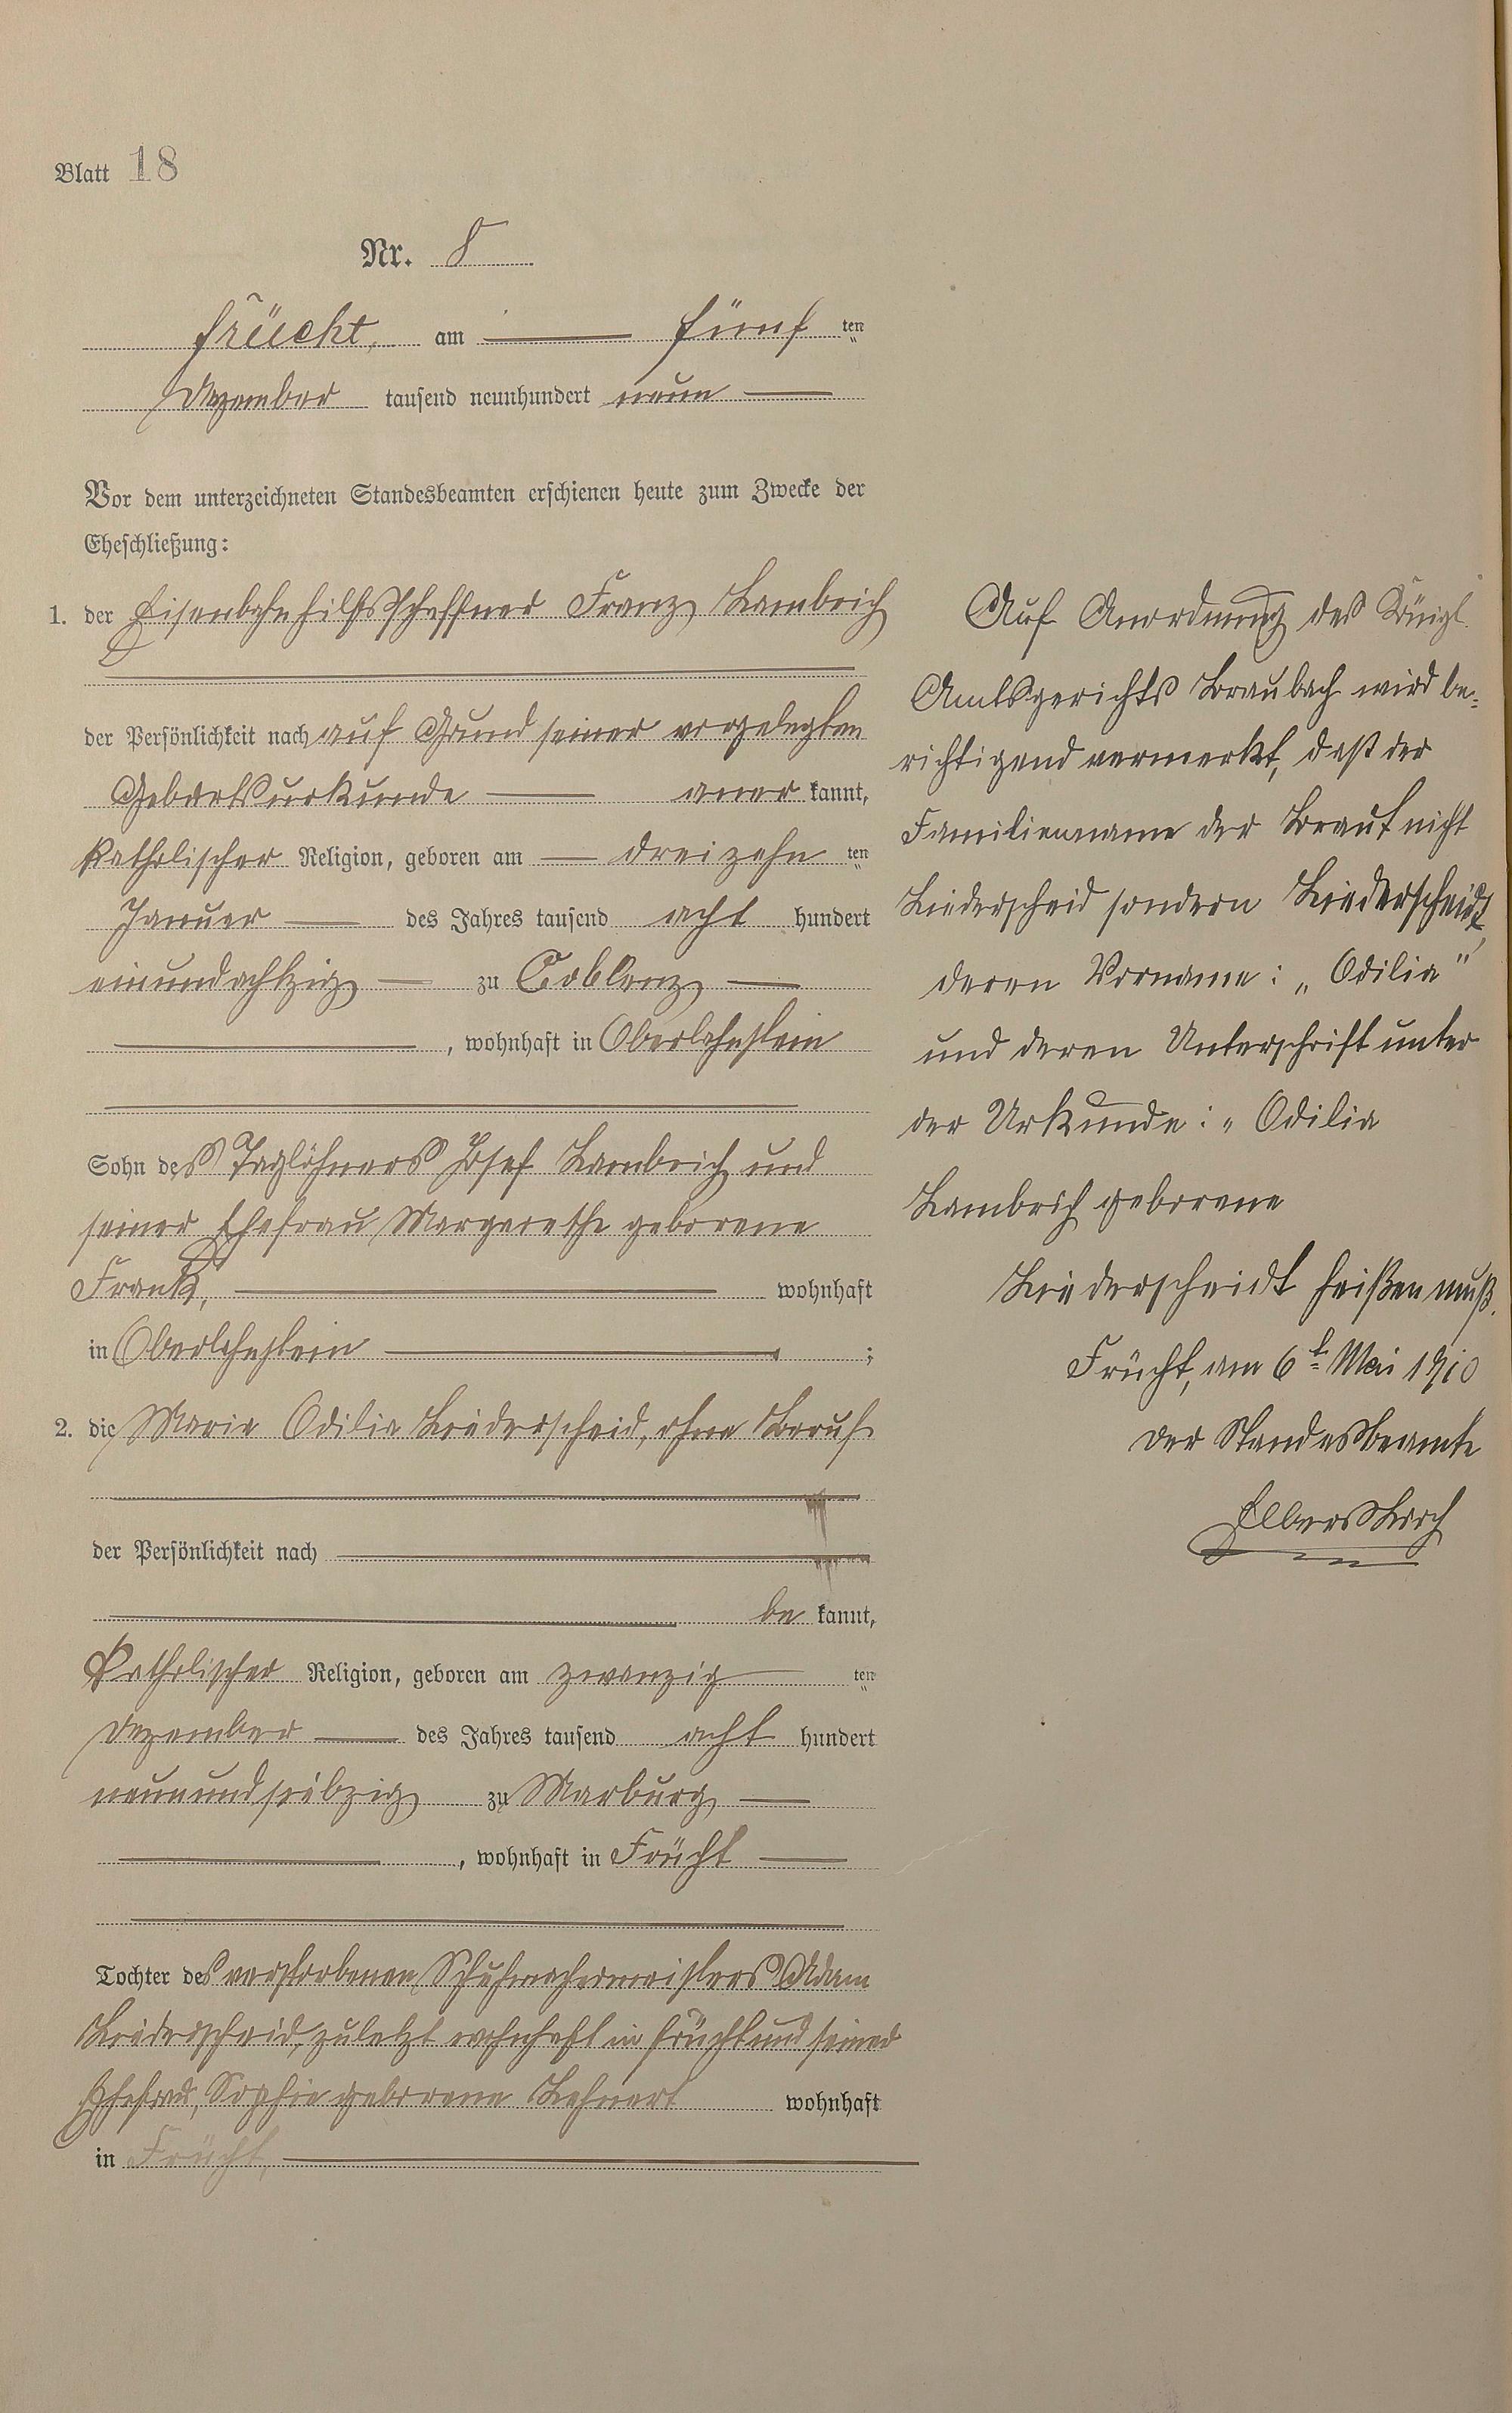 Blatt 18
Nr. 8
Frücht, am fünf ten
Dezember tausend neunhundert neun
Vor dem unterzeichneten Standesbeamten erschienen heute zum Zwecke der
Eheschließung:
1. der Eisenbahnhilfsschaffner Franz Lambrich
der Persönlichkeit nach auf Grund seiner vorgelegten
Geburtsurkunde aner kannt,
katholischer Religion, geboren am dreizehn ten
Januar des Jahres tausend acht hundert
einundachtzig zu Coblenz
, wohnhaft in Oberlahnstein
Sohn des Taglöhners Josef Lambrich und
seiner Ehefrau Margarethe geborene
Frank, wohnhaft
in Oberlahnstein ;
2. die Maria Odilia Liederscheid, ohne Beruf
der Persönlichkeit nach
be kannt,
katholischer Religion, geboren am zwanzig ten
Dezember des Jahres tausend acht hundert
neunundsiebzig zu Marburg
, wohnhaft in Frücht
Tochter des verstorbenen Schuhmachermeisters Adam
Liederscheid, zuletzt wohnhaft in Frücht und seiner
Ehefrau, Sophie geborene Lehnert wohnhaft
in Frücht,
Auf Anordnung des Königl.
Amtsgerichts Braubach wird be-
richtigend vermerkt, daß der
Familienname der Braut nicht
Liederscheid sondern Liederscheidt,
deren Vorname: „Odilia"
und deren Unterschrift unter
der Urkunde: „Odilia
Lambrich geborene
Liederscheidt heißen muß.
Frücht, am 6t Mai 1910
Der Standesbeamte
Elberskirch